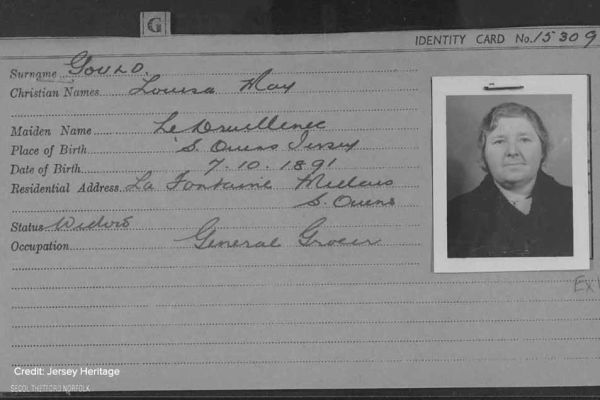 G
IDENTITY CARD No. 15309
Surname Gould
Christian Names Louisa May
Maiden Name Le Druillenec
Place of Birth S. Ouens Jersey
Date of Birth 7.10.1891
Residential Address La Fontaine Millais
S. Ouens
Status Widow
Occupation General Grocer
Credit: Jersey Heritage
SEGOL THETFORD NORFOLK